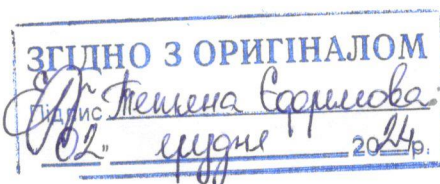 ЗГІДНО З ОРИГІНАЛОМ
Підпис Тетяна Єфремова
"02" грудня 2024р.